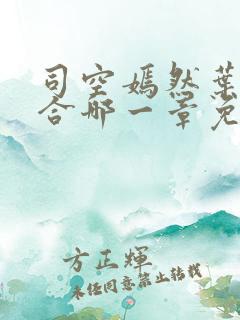 司空嫣然葉
合哪一章免
方正輝
未经同意禁止转载